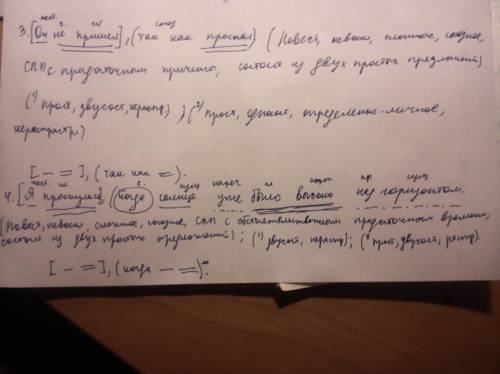 мест. ч. гл союз
3. [Он не пришёл], (так как проспал) (Повест, невоскл, сложное, союзное,
СПП с придаточным причины, состоит из двух простых предложений)
(1) прост, двусост, нераспр.) ; (2) прост, односост, определённо-личное,
нераспростр)
[ — = ], (так как = ).
мест. гл. с. сущ нареч гл нареч пр. сущ
4. [Я проснулся], (когда солнце уже было высоко над горизонтом.
(Повест, невоскл, сложное, союзное, СПП с обстоятельственным придаточным времени,
состоит из двух простых предложений) ; (1) двусост, нераспр); (2) прост, двусост, распр).
[ — = ], (когда — = ).